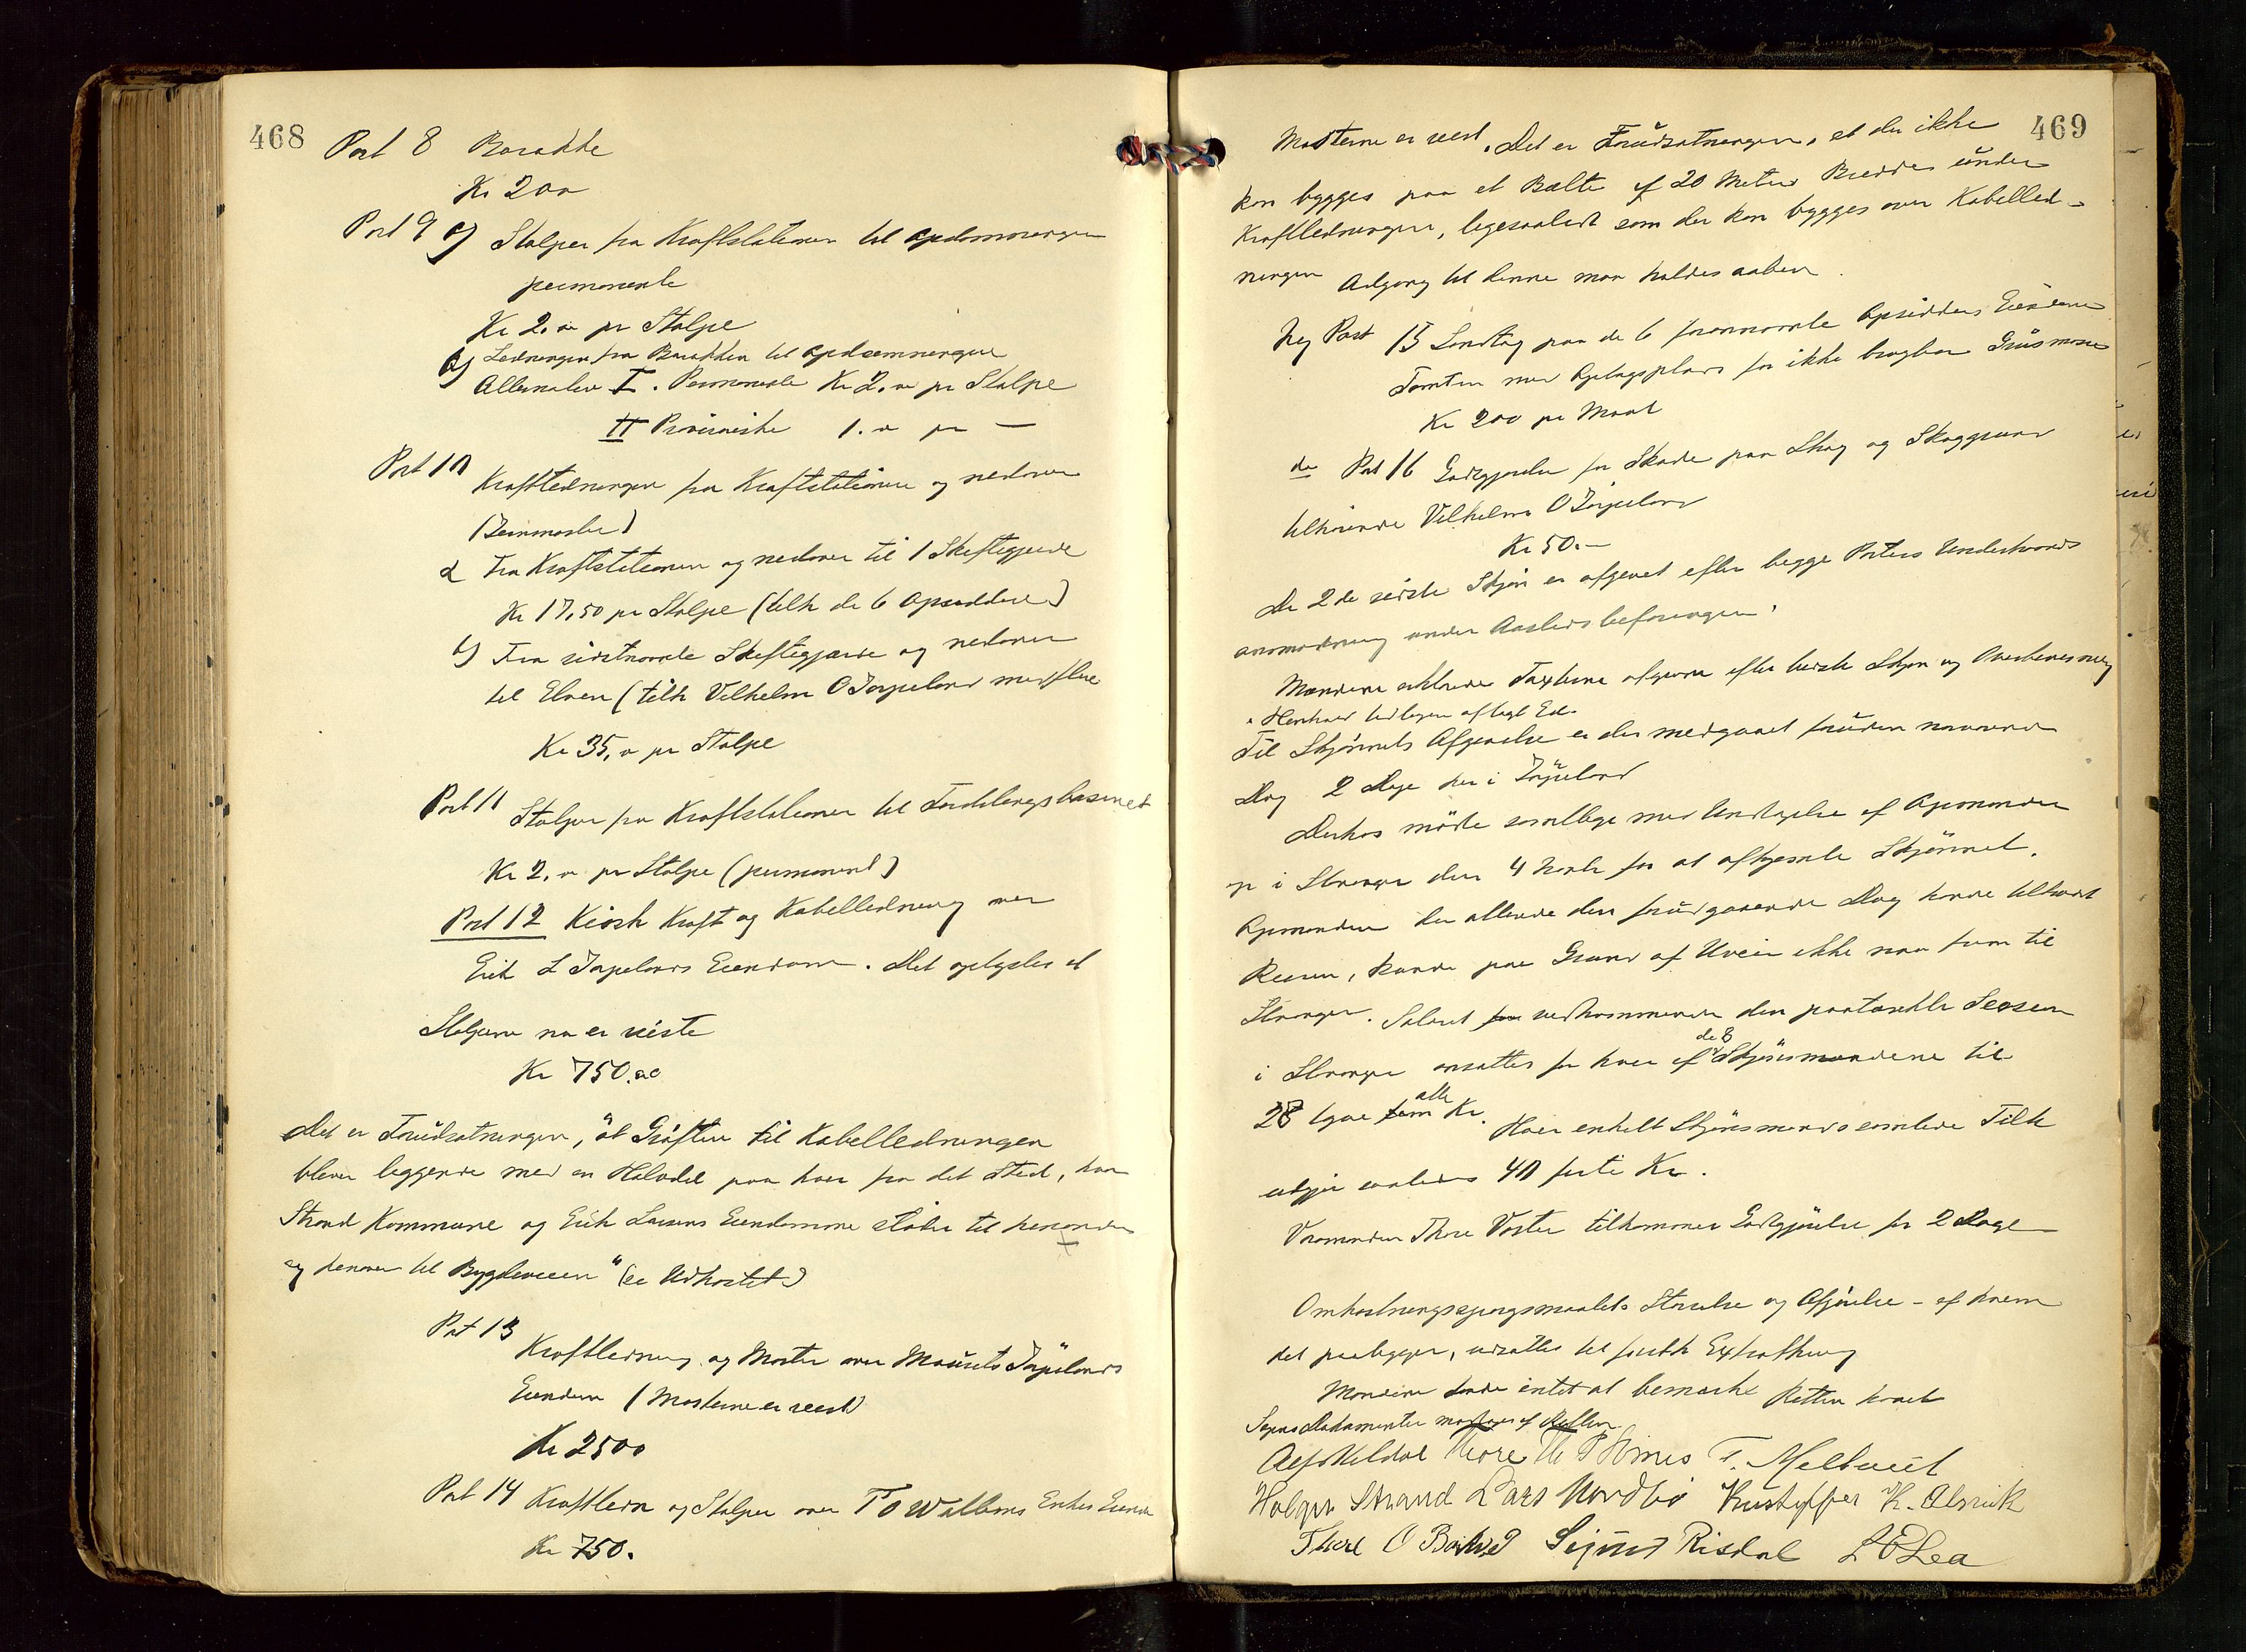 468
Post 8 Barakke
Kr 200
Post 9 a) Stolper fra Kraftstationen til Opdæmningen
permanente
Kr 2.00 pr Stolpe
b) Ledningen fra Barakken til Opdæmningen
Alternativ I. Permanente Kr 2.00 pr Stolpe
II Provisoriske 1.00 pr —
Post 10 Kraftledningen fra Kraftstationen og nedover
(Jernmaster)
a Fra Kraftstationen og nedover til 1 Skiftegjerde
Kr 17,50 pr Stolpe (tilh de 6 Opsiddere)
b) Fra sidstnævnte Skiftegjærde og nedover
til Elven (tilh Vilhelm O Jørpeland med flere
Kr 35,00 pr Stolpe
Post 11 Stolper fra Kraftstationen til Fordelingsbasinet
Kr 2.00 pr Stolpe (permanent)
Post 12 Kiosk Kraft og Kabelledning over
Erik L Jøpelands Eiendom. Det oplystes at
Stolperne nu er reiste
Kr 750.00
Det er Forudsætningen, "at Grøften til Kabelledningen
bliver liggende med en Halvdel paa hver fra det Sted, hvor
Strand Kommune og Erik Larsens Eiendomme støder til hverandre
og henover til Bygdeveien" (se Udkastet)
Post 13
Kraftledning og Master over Maurits Jøpelands
Eiendom (Masterne er reist)
Kr 2500
Post 14 Kraftledn og Stolper over T O Wathnes Enkes Eiend
Kr 750.
469
Masterne er reist. Det er Forudsætningen, at der ikke
kan bygges paa et Bælte af 20 Meters Bredde under
Kraftledningen, ligesaalidt som der kan bygges over Kabelled-
ningen Adgang til denne maa holdes aaben.
Ny Post 15 Sandtag paa de 6 forannævnte Opsidders Eiendomme
Tomten med Oplagsplads for ikke brugbar Grusmasse
Kr 200 pr Maal
do Post 16 Godtgjørelse for Skade paa Skog og Skoggrund
tilhørende Vilhelm O Jørpeland
Kr 50.—
De 2de sidste Skjøn er afgivet efter begge Parters Understands
anmodning under Aastedsbefaringen.
Mændene erklærede Taxterne afgivne efter bedste Skjøn og Overbevisning
i Henhold tidligere aflagt Ed.
Til Skjønnets Afgivelse er der medgaaet foruden nærværende
Dag 2 Dage her i Jøpeland
Derhos mødte samtlige med Undtagelse af Opmanden
op i Stavanger den 4 for at afhjemle Skjønnet.
Opmanden der allerede den forudgaaende Dag havde tiltraadt
Reisen, kunde paa Grund af Uveir ikke naa frem til
Stavanger. Salæret for vedkommende den paatænkte Session
i Stavanger ansættes for hver af de 8 Skjønsmændene til
28 tyve fem otte Kr. Hver enkelt Skjønsmands samlede Tilk
udgjør saaledes 40 førti Kr.
Varamanden Thore Voster tilkommer Godtgjørelse for 2 Dage
Omkostningsspørgsmaalets Størrelse og Afgjørelse - af hvem
det paaligger, udsættes til forestk Exprofthing
Mændene havde intet at bemærke Retten hævet
Sagens Dokumenter modtages af Retten
Alf Meldal Tore T. Meltveit
Holger Strand Lars Nordbø Kristoffer K. Alsvik
Thore O Barkved Sigurd Risdal L E Lea